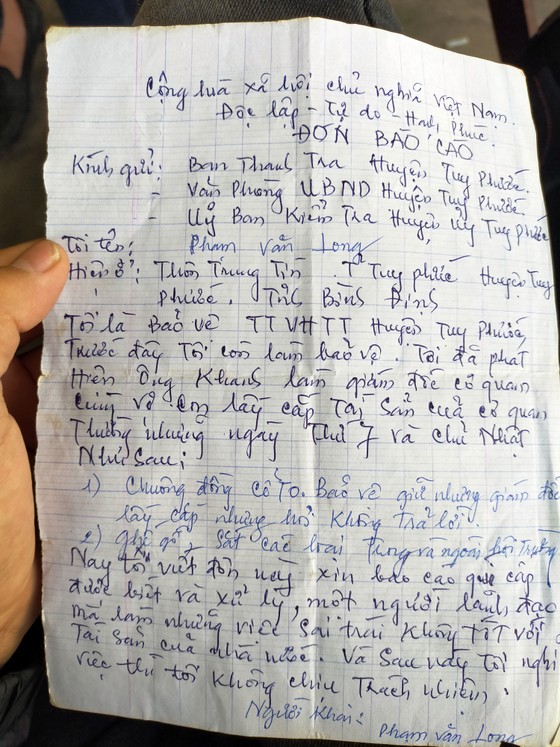 Cộng hoà xã hội chủ nghĩa Việt Nam.
Độc lập - Tự do - Hạnh Phúc.
ĐƠN BÁO CÁO
Kính gửi: Ban Thanh Tra Huyện Tuy Phước.
- Văn Phòng UBND Huyện Tuy Phước.
- Uỷ Ban Kiểm Tra Huyện Uỷ Tuy Phước
Tôi tên: Phạm Văn Long
Hiện ở: Thôn Trung Tín. T Tuy phước Huyện Tuy
Phước. Tỉnh Bình Định
Tôi là Bảo vệ TTVHTT Huyện Tuy Phước,
Trước đây Tôi còn làm bảo vệ. Tôi đã phát
Hiện Ông Khanh làm giám đốc cơ quan
cùng vợ con lấy cắp Tài Sản của cơ quan
Thường những ngày Thứ 7 và chủ Nhật
Như Sau:
1) Chuông đồng cổ To. Bảo vệ giữ nhưng giám đốc
lấy cắp nhưng hỏi không trả lời.
2) ghế gỗ, Sắt các loại Trong và ngoài hội Trường
Nay tôi viết đơn này xin báo cáo quý cấp
được biết và xử lý, một người lãnh đạo
mà làm những việc sai trái không Tốt với
Tài Sản của nhà nước. Và Sau này Tôi nghỉ
việc thì tôi không chịu Trách nhiệm.
Người Khai:
Phạm Văn Long